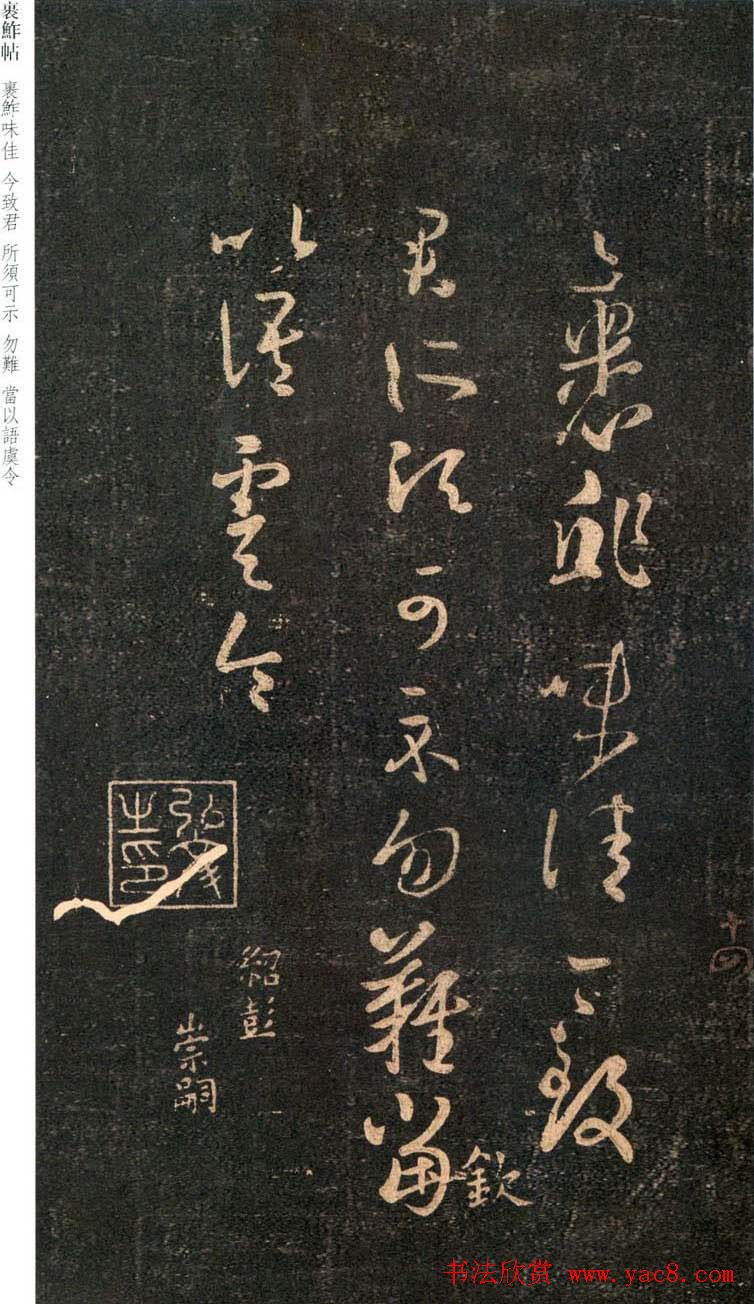 十四
裹鮓味佳今致
君所須可示勿難當
欽
以語虞令
弘文之印
紹彭
崇嗣
裹鮓帖 裹鮓味佳 今致君 所須可示 勿難 當以語虞令
书法欣赏 www.yac8.com